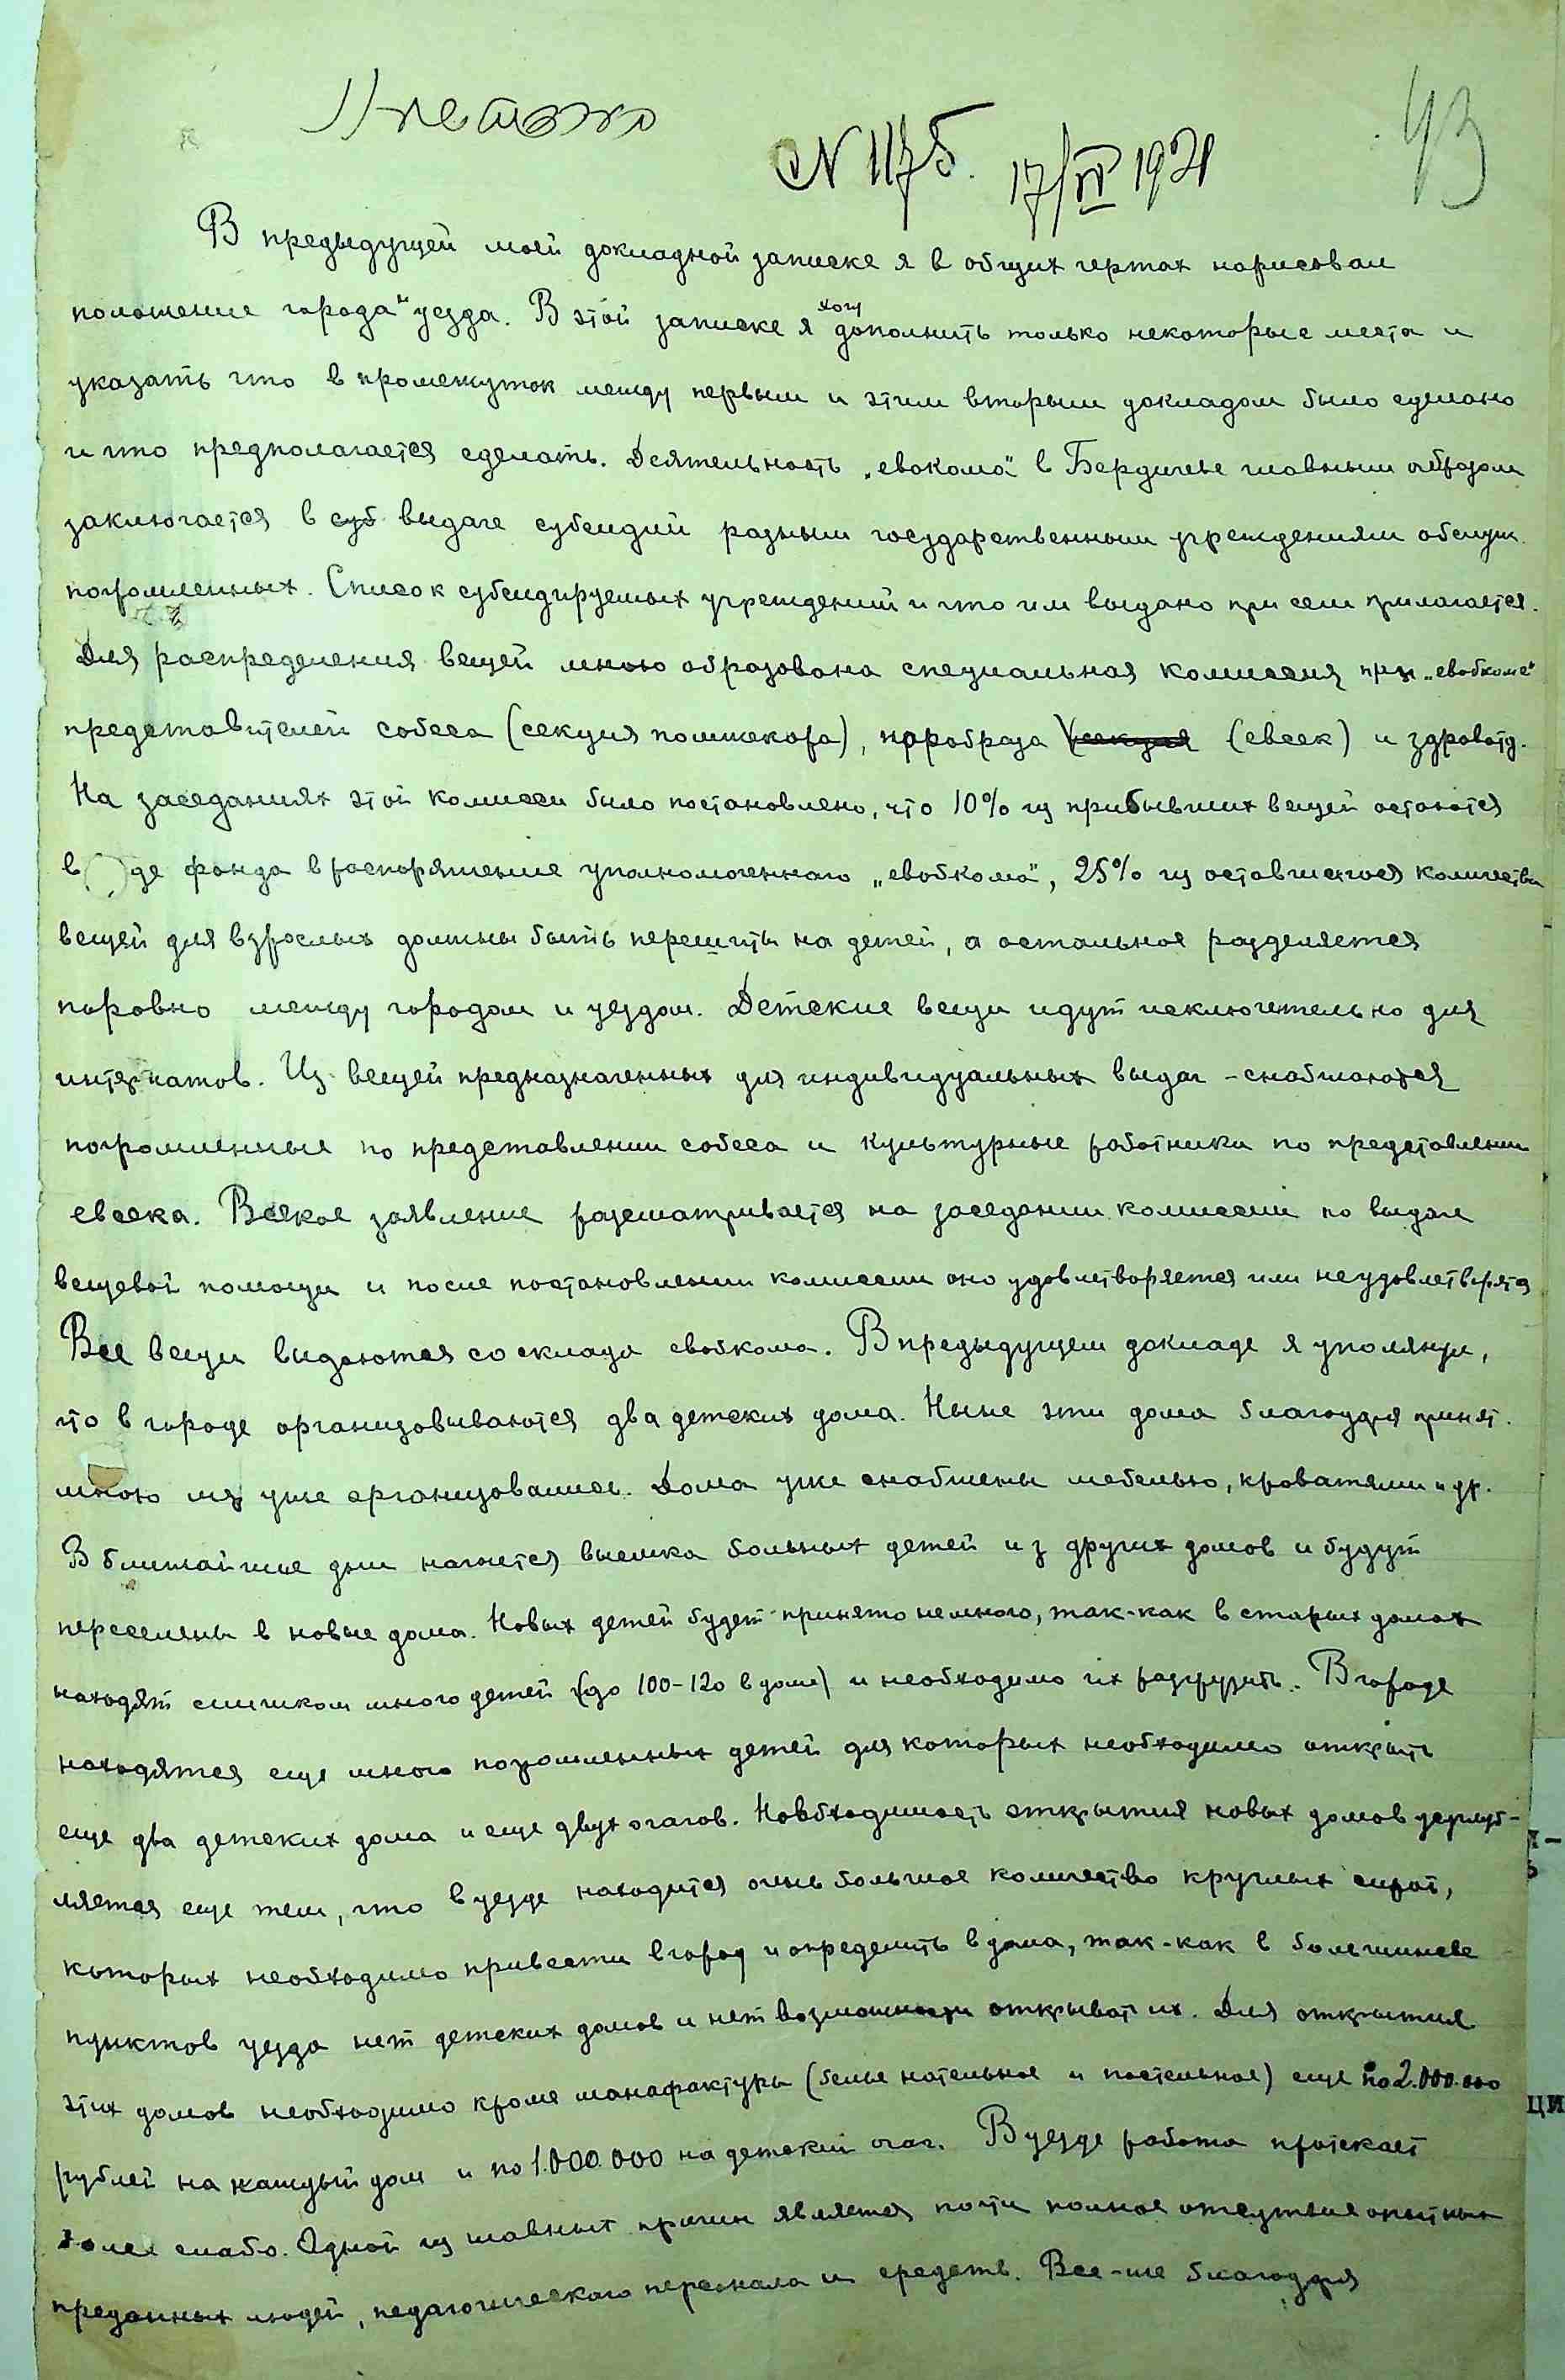 № 1175. 17/VI 1921
43
В предыдущей моей докладной записке я в общих чертах нарисовал
положение города и уезда. В этой записке я хочу дополнить только некоторые места и
указать что в промежуток между первым и этим вторым докладом было сделано
и что предполагается сделать. Деятельность „евокома" в Бердичеве главным образом
заключается в суб выдаче субсидий разным государственным учреждениям обслуж.
погромленных. Список субсидируемых учреждений и что им выдано при сем прилагается.
Для распределения вещей мною образована специальная комиссия при „евобкоме"
представителей собеса (секция помпекора), наробраза секция (евсек) и здравотд.
На заседаниях этой комисси было постановлено, что 10% из прибывших вещей остаются
в де фонда в распоряжение уполномоченнаго „евобкома", 25% из оставшегося количества
вещей для взрослых должны быть перешиты на детей, а остальное разделяется
поровно между городом и уездом. Детские вещи идут исключительно для
интернатов. Из вещей предназначенных для индивидуальных выдач - снабжаются
погромленные по представлении собеса и культурные работники по представлении
евсека. Всякое заявление разсматривается на заседании комиссии по выдаче
вещевой помощи и после постановлении комиссии оно удовлетворяется или неудовлетворятся
Все вещи выдаются со склада евобкома. В предыдущем докладе я упомянул,
что в городе организовываются два детских дома. Ныне эти дома благодаря принят.
мною мер уже организовались. Дома уже снабжены мебелью, кроватями и др.
В ближайшие дни начнется выемка больных детей из других домов и будут
переселены в новые дома. Новых детей будет принято немного, так-как в старых домах
находят слишком много детей (до 100-120 в доме) и необходимо их разгрузить. В городе
находятся еще много погромленных детей для которых необходимо открыть
еще два детских дома и еще двух очагов. Необходимость открытия новых домов усугуб-
ляется еще тем, что в уезде находится очень большое количество круглых сирот,
которых необходимо привести в город и определить в дома, так-как в болшинсве
пунктов уезда нет детских домов и нет возможности открыват их. Для открытия
этих домов необходимо кроме манафактуры (белье нательное и постельное) еще по 2.000.000
рублей на каждый дом и по 1.000.000 на детский очаг. В уезде работа протекает
более слабо. Одной из главных причин является почти полное отсутвие опытных
преданных людей, педагогического персонала и средств. Все-же благодаря